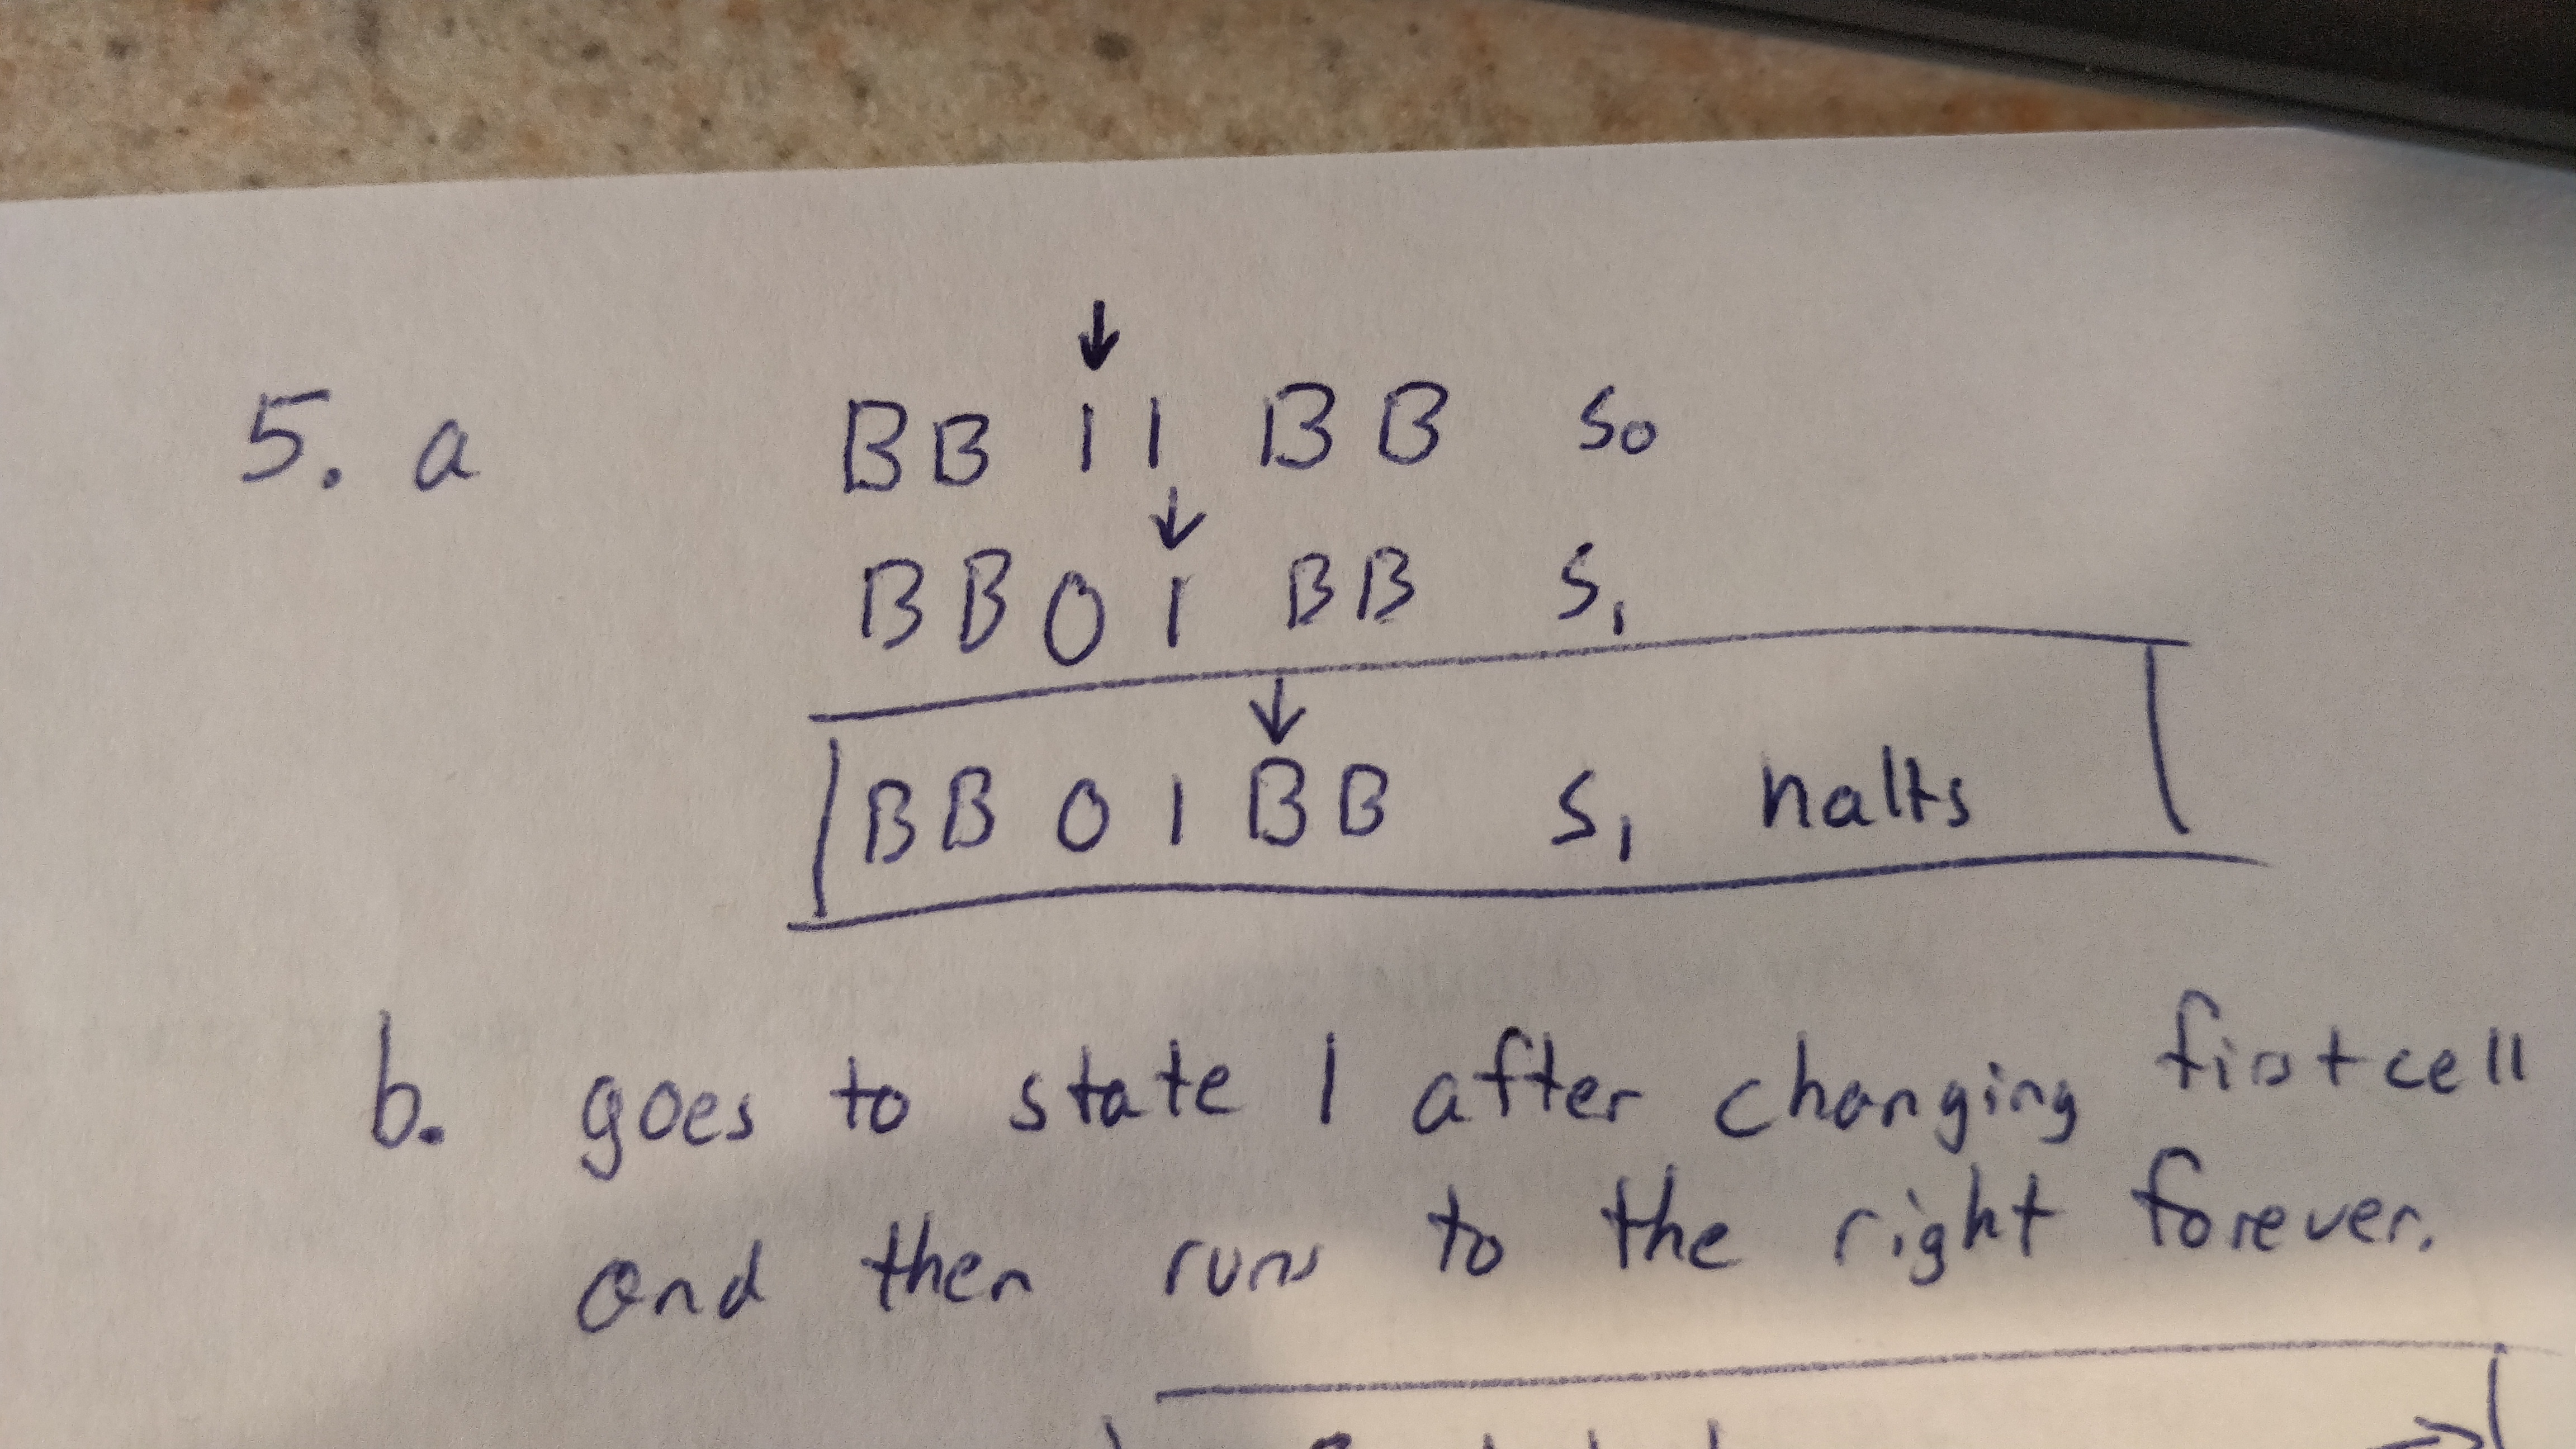 ↓
5. a BB 11 BB S₀
↓
BB01 BB S₁
↓
BB 01 BB S₁ halts
b. goes to state 1 after changing first cell
and then runs to the right forever.